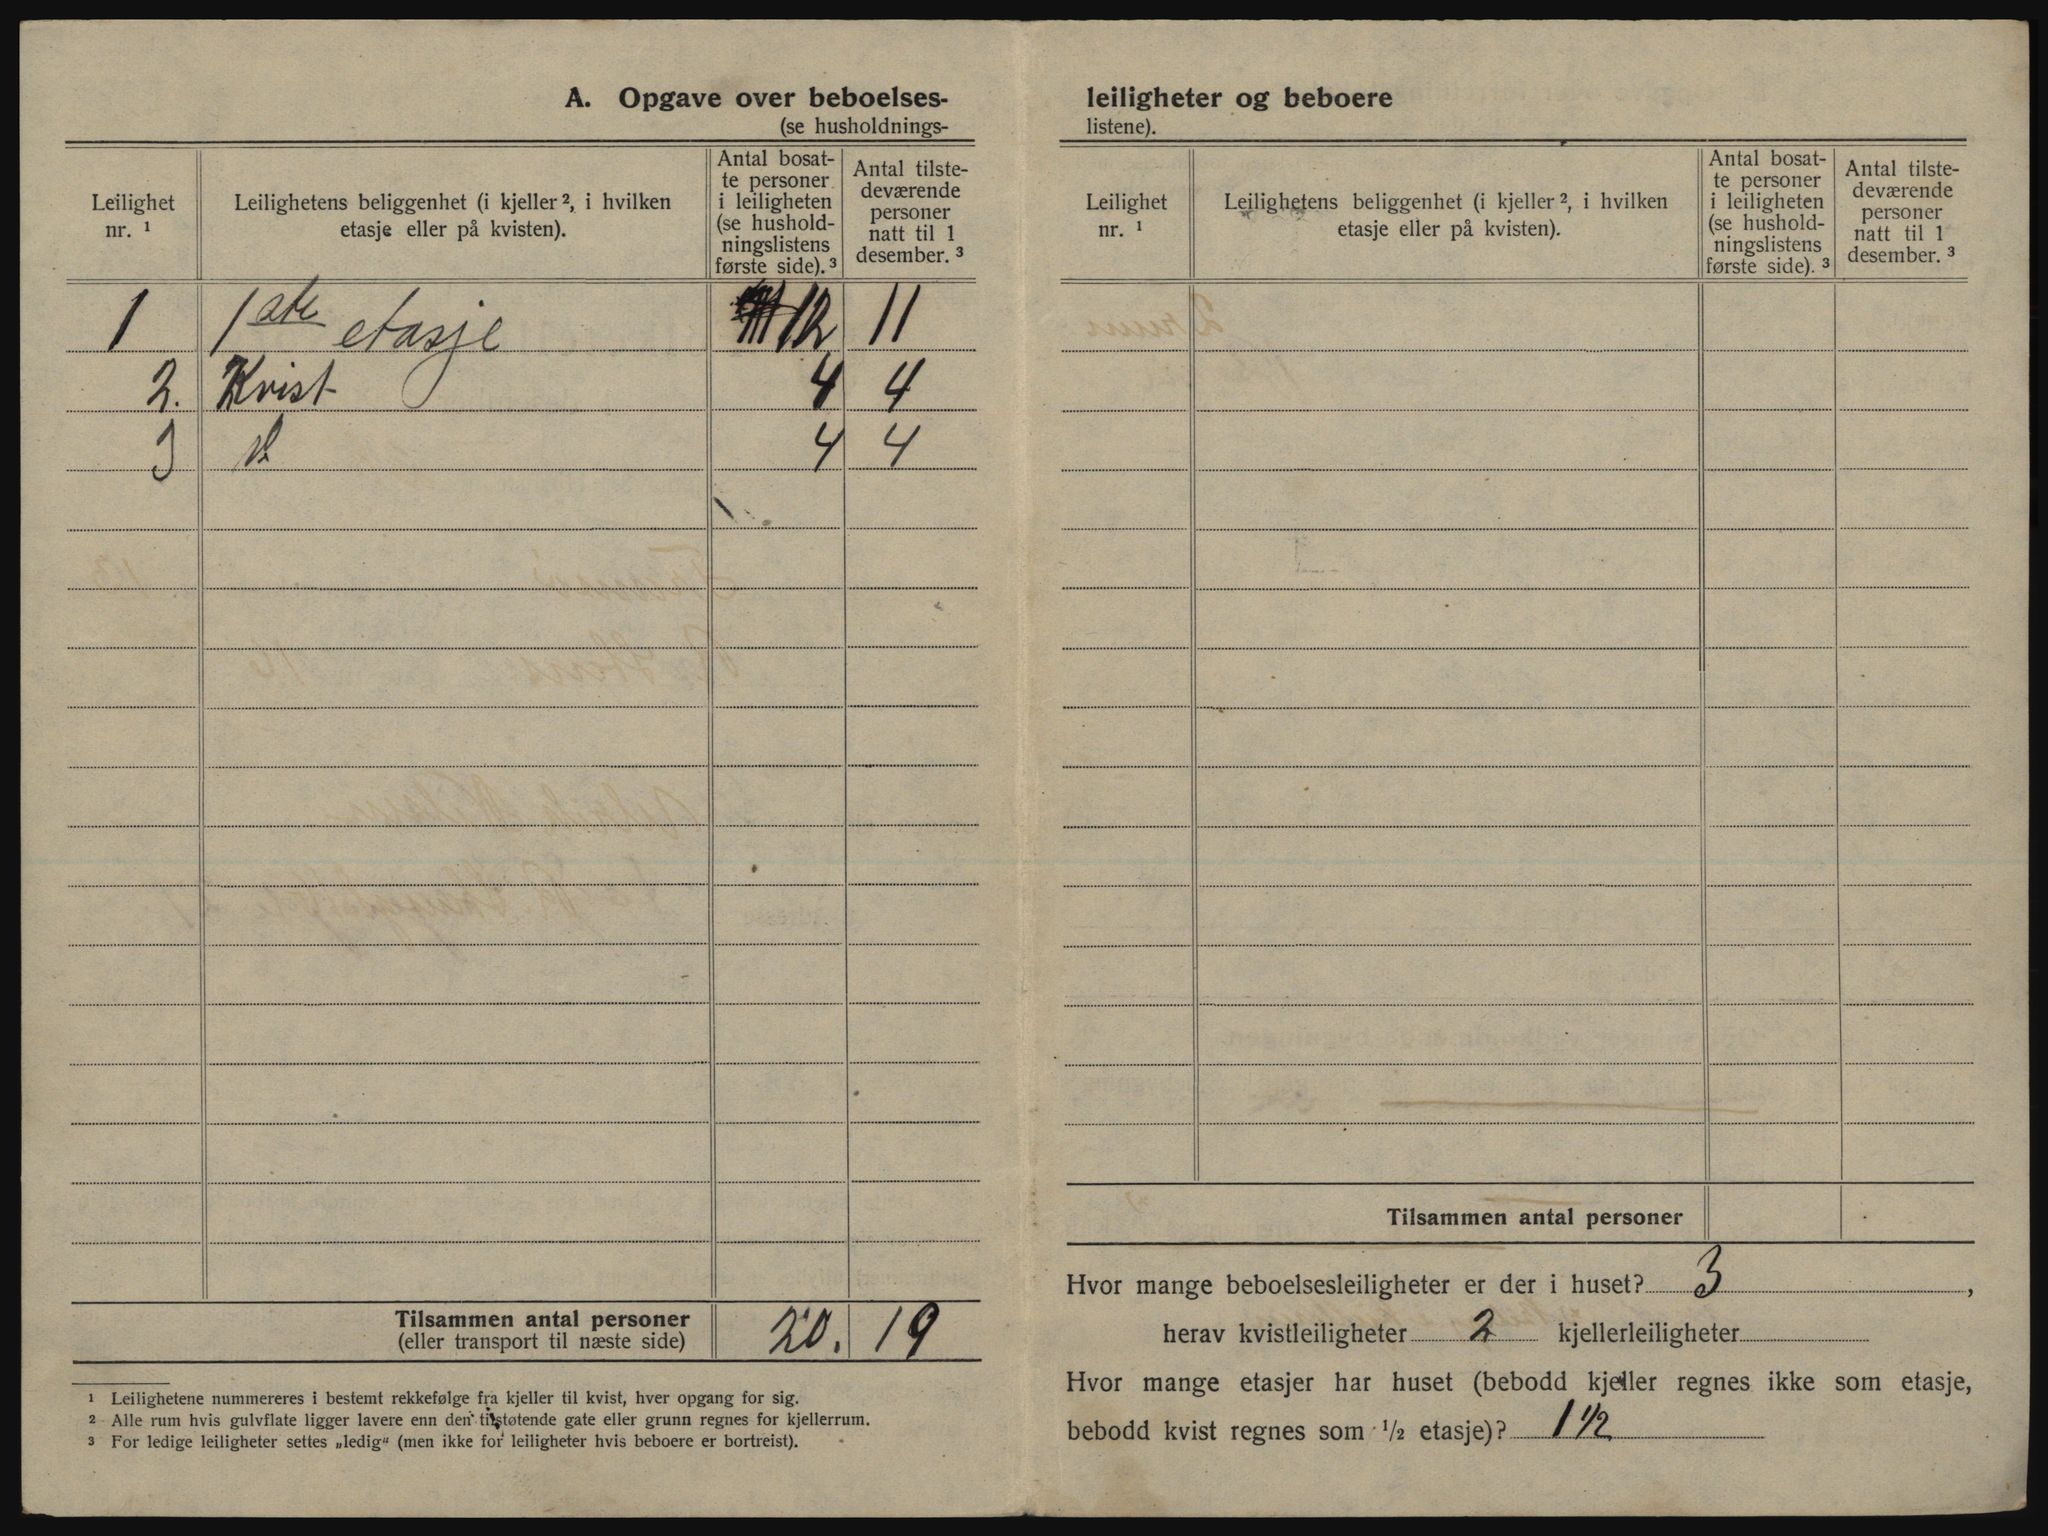 A. Opgave over beboelses-
(se husholdnings-
Leilighet nr. ¹
Leilighetens beliggenhet (i kjeller ², i hvilken etasje eller på kvisten).
Antal bosat-
te personer
i leiligheten
(se hushold-
ningslistens
første side). ³
Antal tilste-
deværende
personer
natt til 1
desember. ³
1 1ste etasje 12 11
2. Kvist 4 4
3 4 4
Tilsammen antal personer
(eller transport til næste side) 20. 19
¹ Leilighetene nummereres i bestemt rekkefølge fra kjeller til kvist, hver opgang for sig.
² Alle rum hvis gulvflate ligger lavere enn den tilstøtende gate eller grunn regnes for kjellerrum.
³ For ledige leiligheter settes „ledig“ (men ikke for leiligheter hvis beboere er bortreist).
leiligheter og beboere
listene).
Leilighet nr. ¹
Leilighetens beliggenhet (i kjeller ², i hvilken etasje eller på kvisten).
Antal bosat-
te personer
i leiligheten
(se hushold-
ningslistens
første side). ³
Antal tilste-
deværende
personer
natt til 1
desember. ³
Tilsammen antal personer
Hvor mange beboelsesleiligheter er der i huset? 3,
herav kvistleiligheter 2 kjellerleiligheter
Hvor mange etasjer har huset (bebodd kjeller regnes ikke som etasje,
bebodd kvist regnes som ½ etasje)? 1 ½